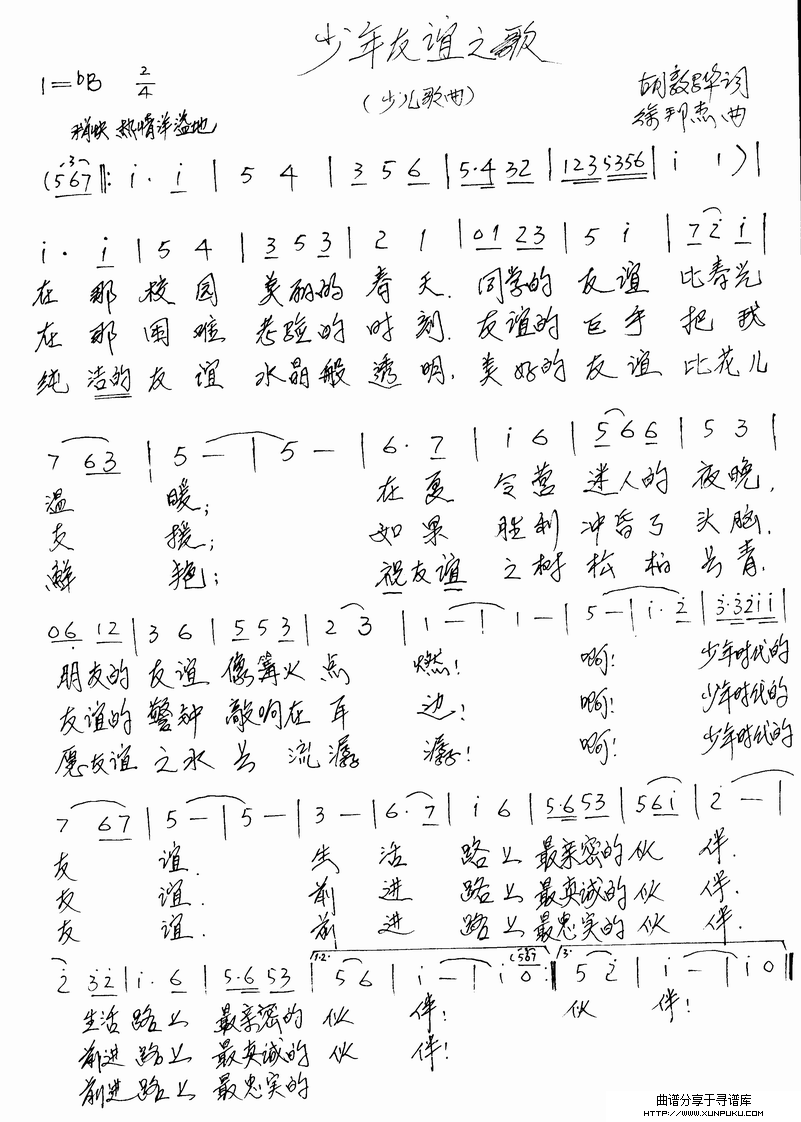 少年友谊之歌
1=♭B 2/4
(少儿歌曲)
胡敦骅词
徐邦杰曲
稍快 热情洋溢地
(567 ‖: i· i | 5 4 | 3 5 6 | 5·4 32 | 123 5356 | i 1 ) |
i· i | 5 4 | 3 5 3 | 2 1 | 01 23 | 5 i | 7 2 i |
在 那 校 园 美丽的 春 天. 同学的 友 谊 比春光
在 那 困 难 考验的 时 刻. 友谊的 巨 手 把 我
纯 洁的 友 谊 水晶般 透 明. 美好的 友 谊 比花儿
7 63 | 5 — | 5 — | 6· 7 | i 6 | 5 6 6 | 5 3 |
温 暖; 在 夏 令 营 迷人的 夜 晚,
支 援; 如 果 胜 利 冲昏了 头 脑.
鲜 艳; 祝友谊 之 树 松 柏 长 青.
06 12 | 3 6 | 5 5 3 | 2 3 | 1 — | 1 — | 5 — | i· 2 | 3·3 2 i i |
朋友的 友 谊 像篝火 点 燃! 啊! 少年时代的
友谊的 警 钟 敲响在 耳 边! 啊! 少年时代的
愿友谊 之 水 长 流 潺 潺! 啊! 少年时代的
7 67 | 5 — | 5 — | 3 — | 6· 7 | i 6 | 5·6 53 | 5 6 i | 2 — |
友 谊. 生 活 路 上 最亲密的 伙 伴.
友 谊. 前 进 路 上 最真诚的 伙 伴.
友 谊. 前 进 路 上 最忠实的 伙 伴.
2 32 | i· 6 | 5·6 53 | 1·2. 5 6 | i — | i 0 (567 :‖ 3. 5 2 | i — | i 0 ‖
生活 路 上 最亲密的 伙 伴! 伙 伴!
前进 路 上 最真诚的 伙 伴!
前进 路 上 最忠实的
曲谱分享于寻谱库
HTTP://WWW.XUNPUKU.COM